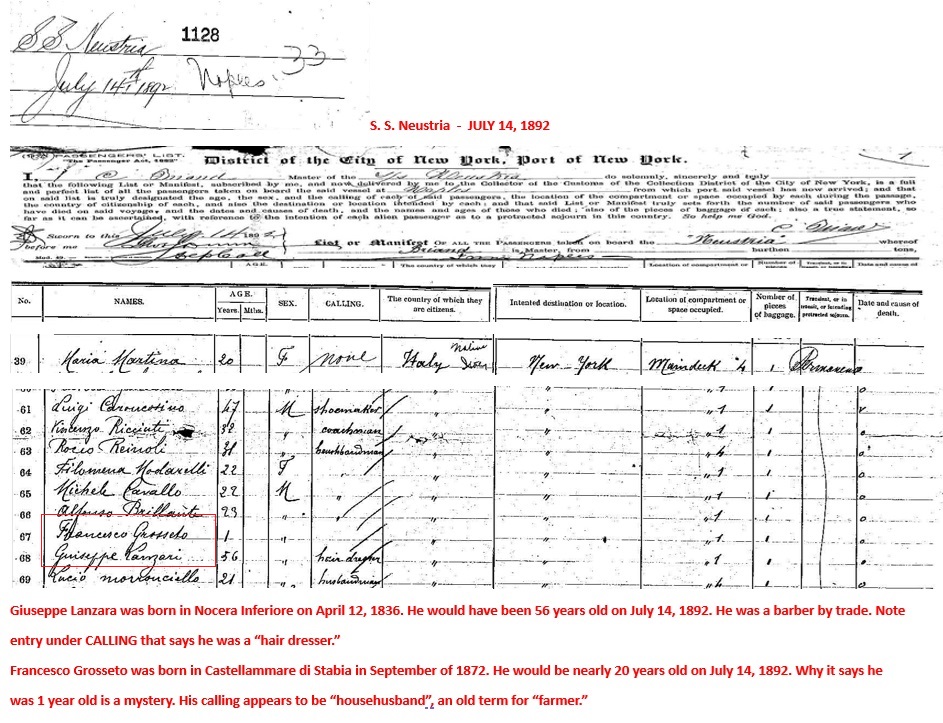 S S Neustria 1128
July 14th 1892 Naples 33
S. S. Neustria - JULY 14, 1892
PASSENGERS' LIST.
"The Passenger Act, 1882"
District of the City of New York, Port of New York.
I, Master of the do solemnly, sincerely and truly
that the following List or Manifest, subscribed by me, and now delivered by me to the Collector of the Customs of the Collection District of the City of New York, is a full
and perfect list of all the passengers taken on board the said vessel at Naples from which port said vessel has now arrived; and that
on said list is truly designated the age, the sex, and the calling of each of said passengers, the location of the compartment or space occupied by each during the passage,
the country of citizenship of each, and also the destination or location intended by each; and that said List or Manifest truly sets forth the number of said passengers who
have died on said voyage, and the dates and causes of death, and the names and ages of those who died; also of the pieces of baggage of each; also a true statement, so
far as it can be ascertained, with reference to the intention of each alien passenger as to a protracted sojourn in this country. So help me God.
Sworn to this July 14 1892
before me
List or Manifest OF ALL THE PASSENGERS taken on board the Neustria whereof
is Master, from Naples burthen tons,
AGE. The country of which they Location of compartment or Number of Date and cause of
No. NAMES. AGE. Years. Mths. SEX. CALLING. The country of which they are citizens. Intended destination or location. Location of compartment or space occupied. Number of pieces of baggage. Transient, or in transit, or intending protracted sojourn. Date and cause of death.
39 Maria Martina 20 F None Italy Native New-York Maindeck 4 1
61 Luigi 47 M shoemaker " " " 1 1
62 Vincenzo Ricciuti 32 " coachman " " " 1 1
63 Rocco 31 " " " " 4 1
64 Filomena Modarelli 22 F " " " " 1 1
65 Michele Cavallo 22 M " " " " 1 1
66 Alfonso Brillante 23 " " " " " 1 1
67 Francesco Grosseto 1 " " " " " 1 1
68 Guiseppe Lanzari 56 " hair dresser " " " 1 1
69 Lucio 21 " husbandman " " " 4 1
Giuseppe Lanzara was born in Nocera Inferiore on April 12, 1836. He would have been 56 years old on July 14, 1892. He was a barber by trade. Note
entry under CALLING that says he was a “hair dresser.”
Francesco Grosseto was born in Castellammare di Stabia in September of 1872. He would be nearly 20 years old on July 14, 1892. Why it says he
was 1 year old is a mystery. His calling appears to be “househusband”, an old term for “farmer.”